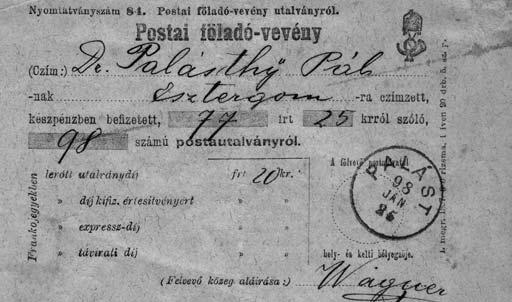 Nyomtatványszám 84. Postai föladó-vevény utalványról.
Postai föladó-vevény
(Czim:) Dr. Palásthy Pál
-nak Esztergom -ra czimzett,
készpénzben befizetett, 77 frt 25 krról szóló,
98 számú postautalványról.
Frankojegyekben
lerótt utalványdíj frt 20 kr.
» díj kifiz. értesítvényért
» expressz-díj
» távirati díj
A fölvevő
PALÁST
98
JAN
26
hely- és kelti bélyegzője.
(Felvevő közeg aláírása:) Wagner